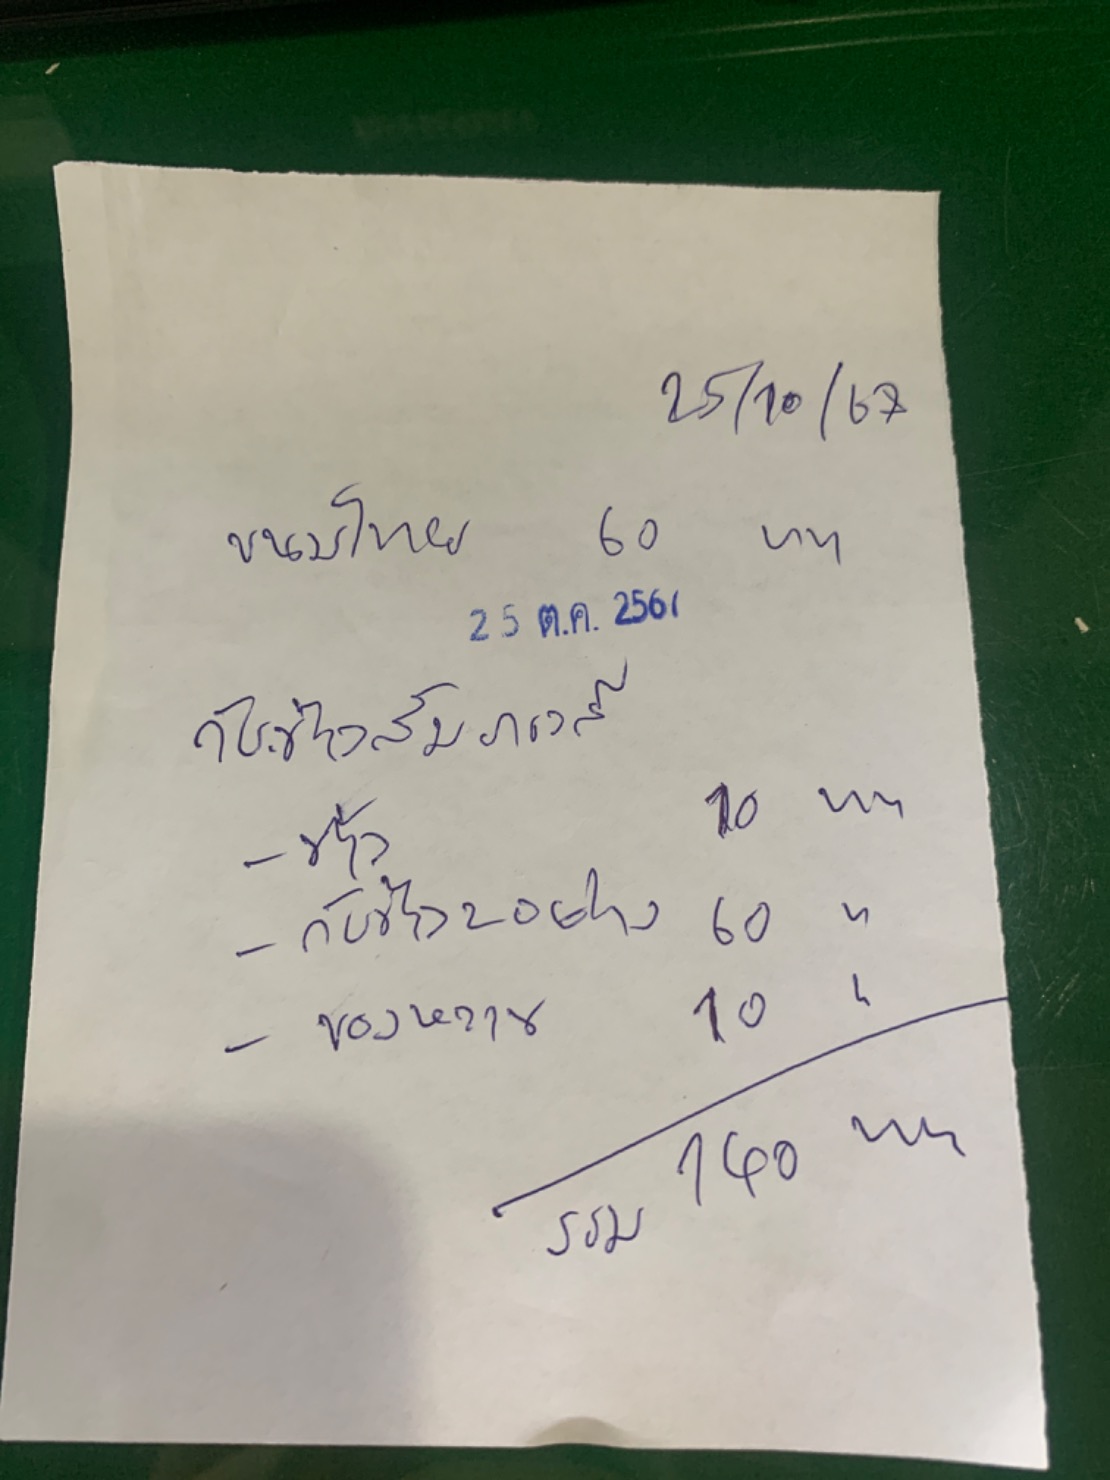 25/10/67
ขนมไทย 60 บาท
25 ต.ค. 2567
กับข้าวส้ม
- ข้าว 10 บาท
- กับข้าว 2 อย่าง 60 "
- ของหวาน 10 "
รวม 140 บาท